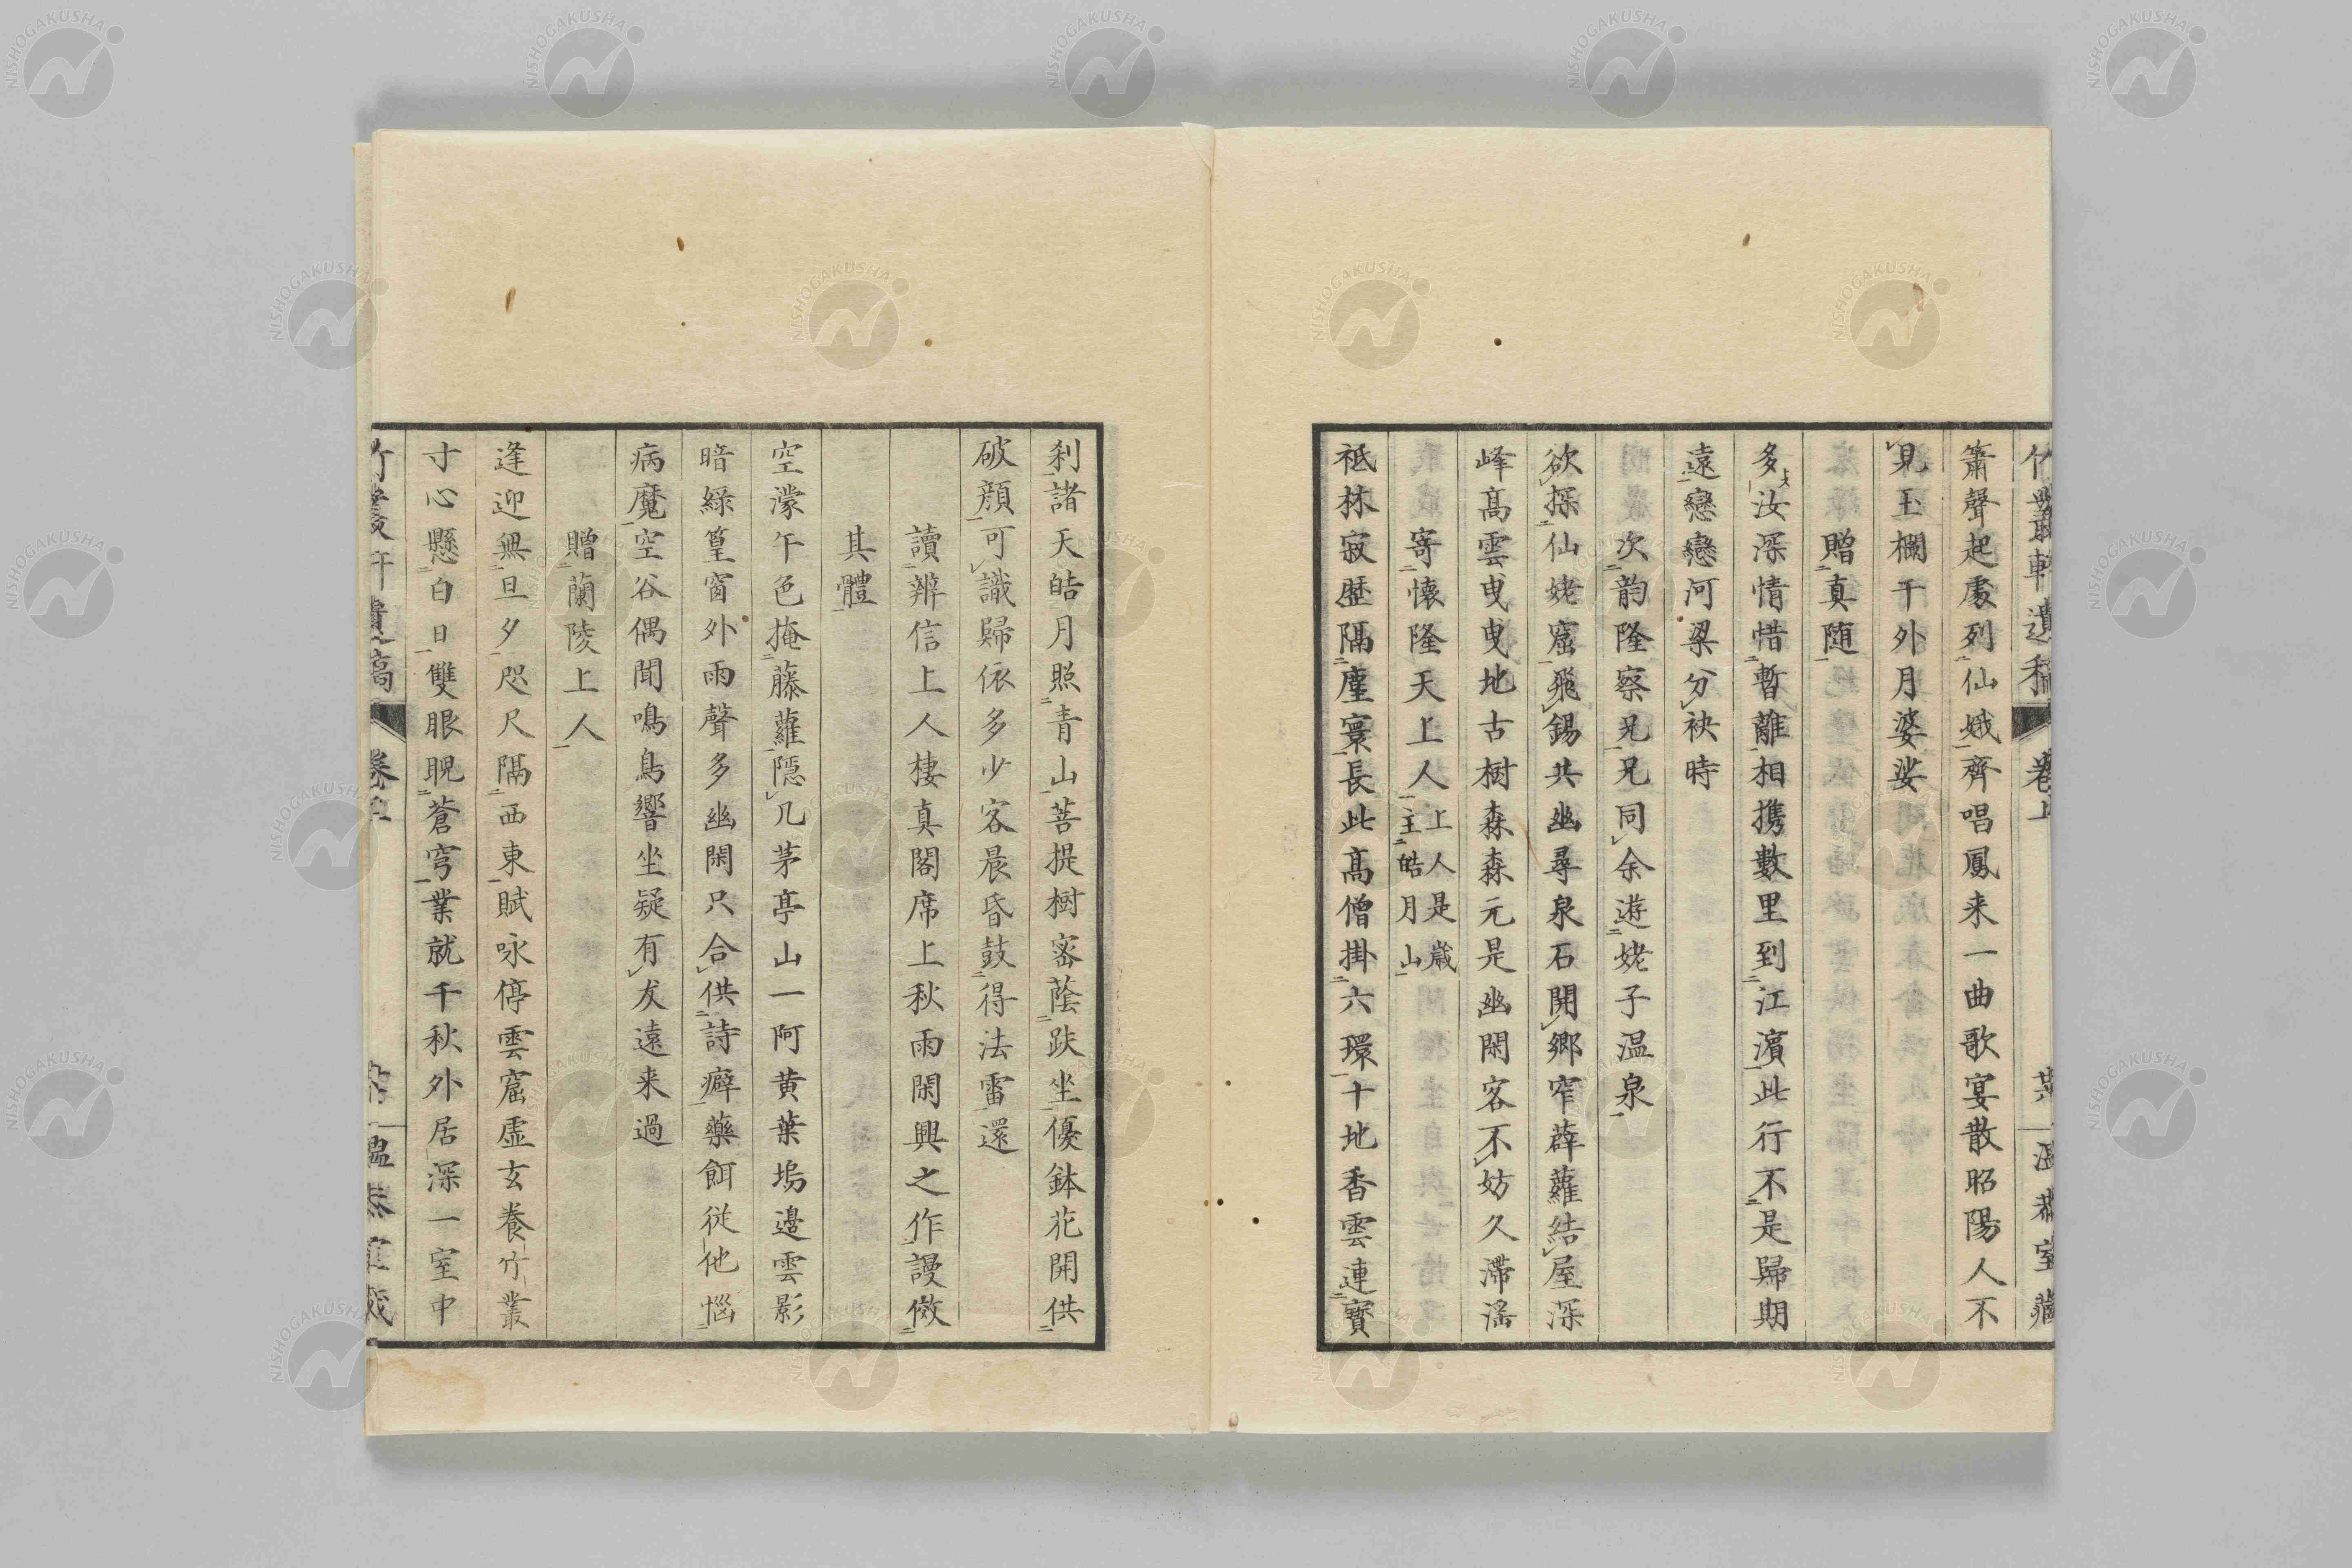 竹叢軒遺稿 卷上 温恭室藏
簫聲起處列仙娥齊唱鳳来一曲歌宴散昭陽人不
見玉欄干外月婆娑
贈真随
多汝深情惜暫離相携數里到江濱此行不是歸期
遠戀戀河梁分袂時
次韵隆察兄兄同余遊姥子温泉
欲探仙姥窟飛錫共幽尋泉石開鄉窄薜蘿結屋深
峰高雲曳曳地古樹森森元是幽閑客不妨久滯滛
寄懷隆天上人上人是歳主皓月山
祗林寂歴隔塵寰長此高僧掛六環十地香雲連寶
刹諸天皓月照青山菩提樹密蔭趺坐優鉢花開供
破顔可識歸依多少客晨昏鼓得法雷還
讀辨信上人棲真閣席上秋雨閑興之作謾傚
其體
空濛午色掩藤蘿隠几茅亭山一阿黄葉塢邊雲影
暗緑篁窗外雨聲多幽閑只合供詩癖藥餌従他惱
病魔空谷偶聞鳴鳥響坐疑有友遠来過
贈蘭陵上人
逢迎無旦夕咫尺隔西東賦咏停雲窟虚玄養竹叢
寸心懸白日雙眼睨蒼穹業就千秋外居深一室中
竹叢軒遺稿 卷上 温恭室藏
NISHOGAKUSHA